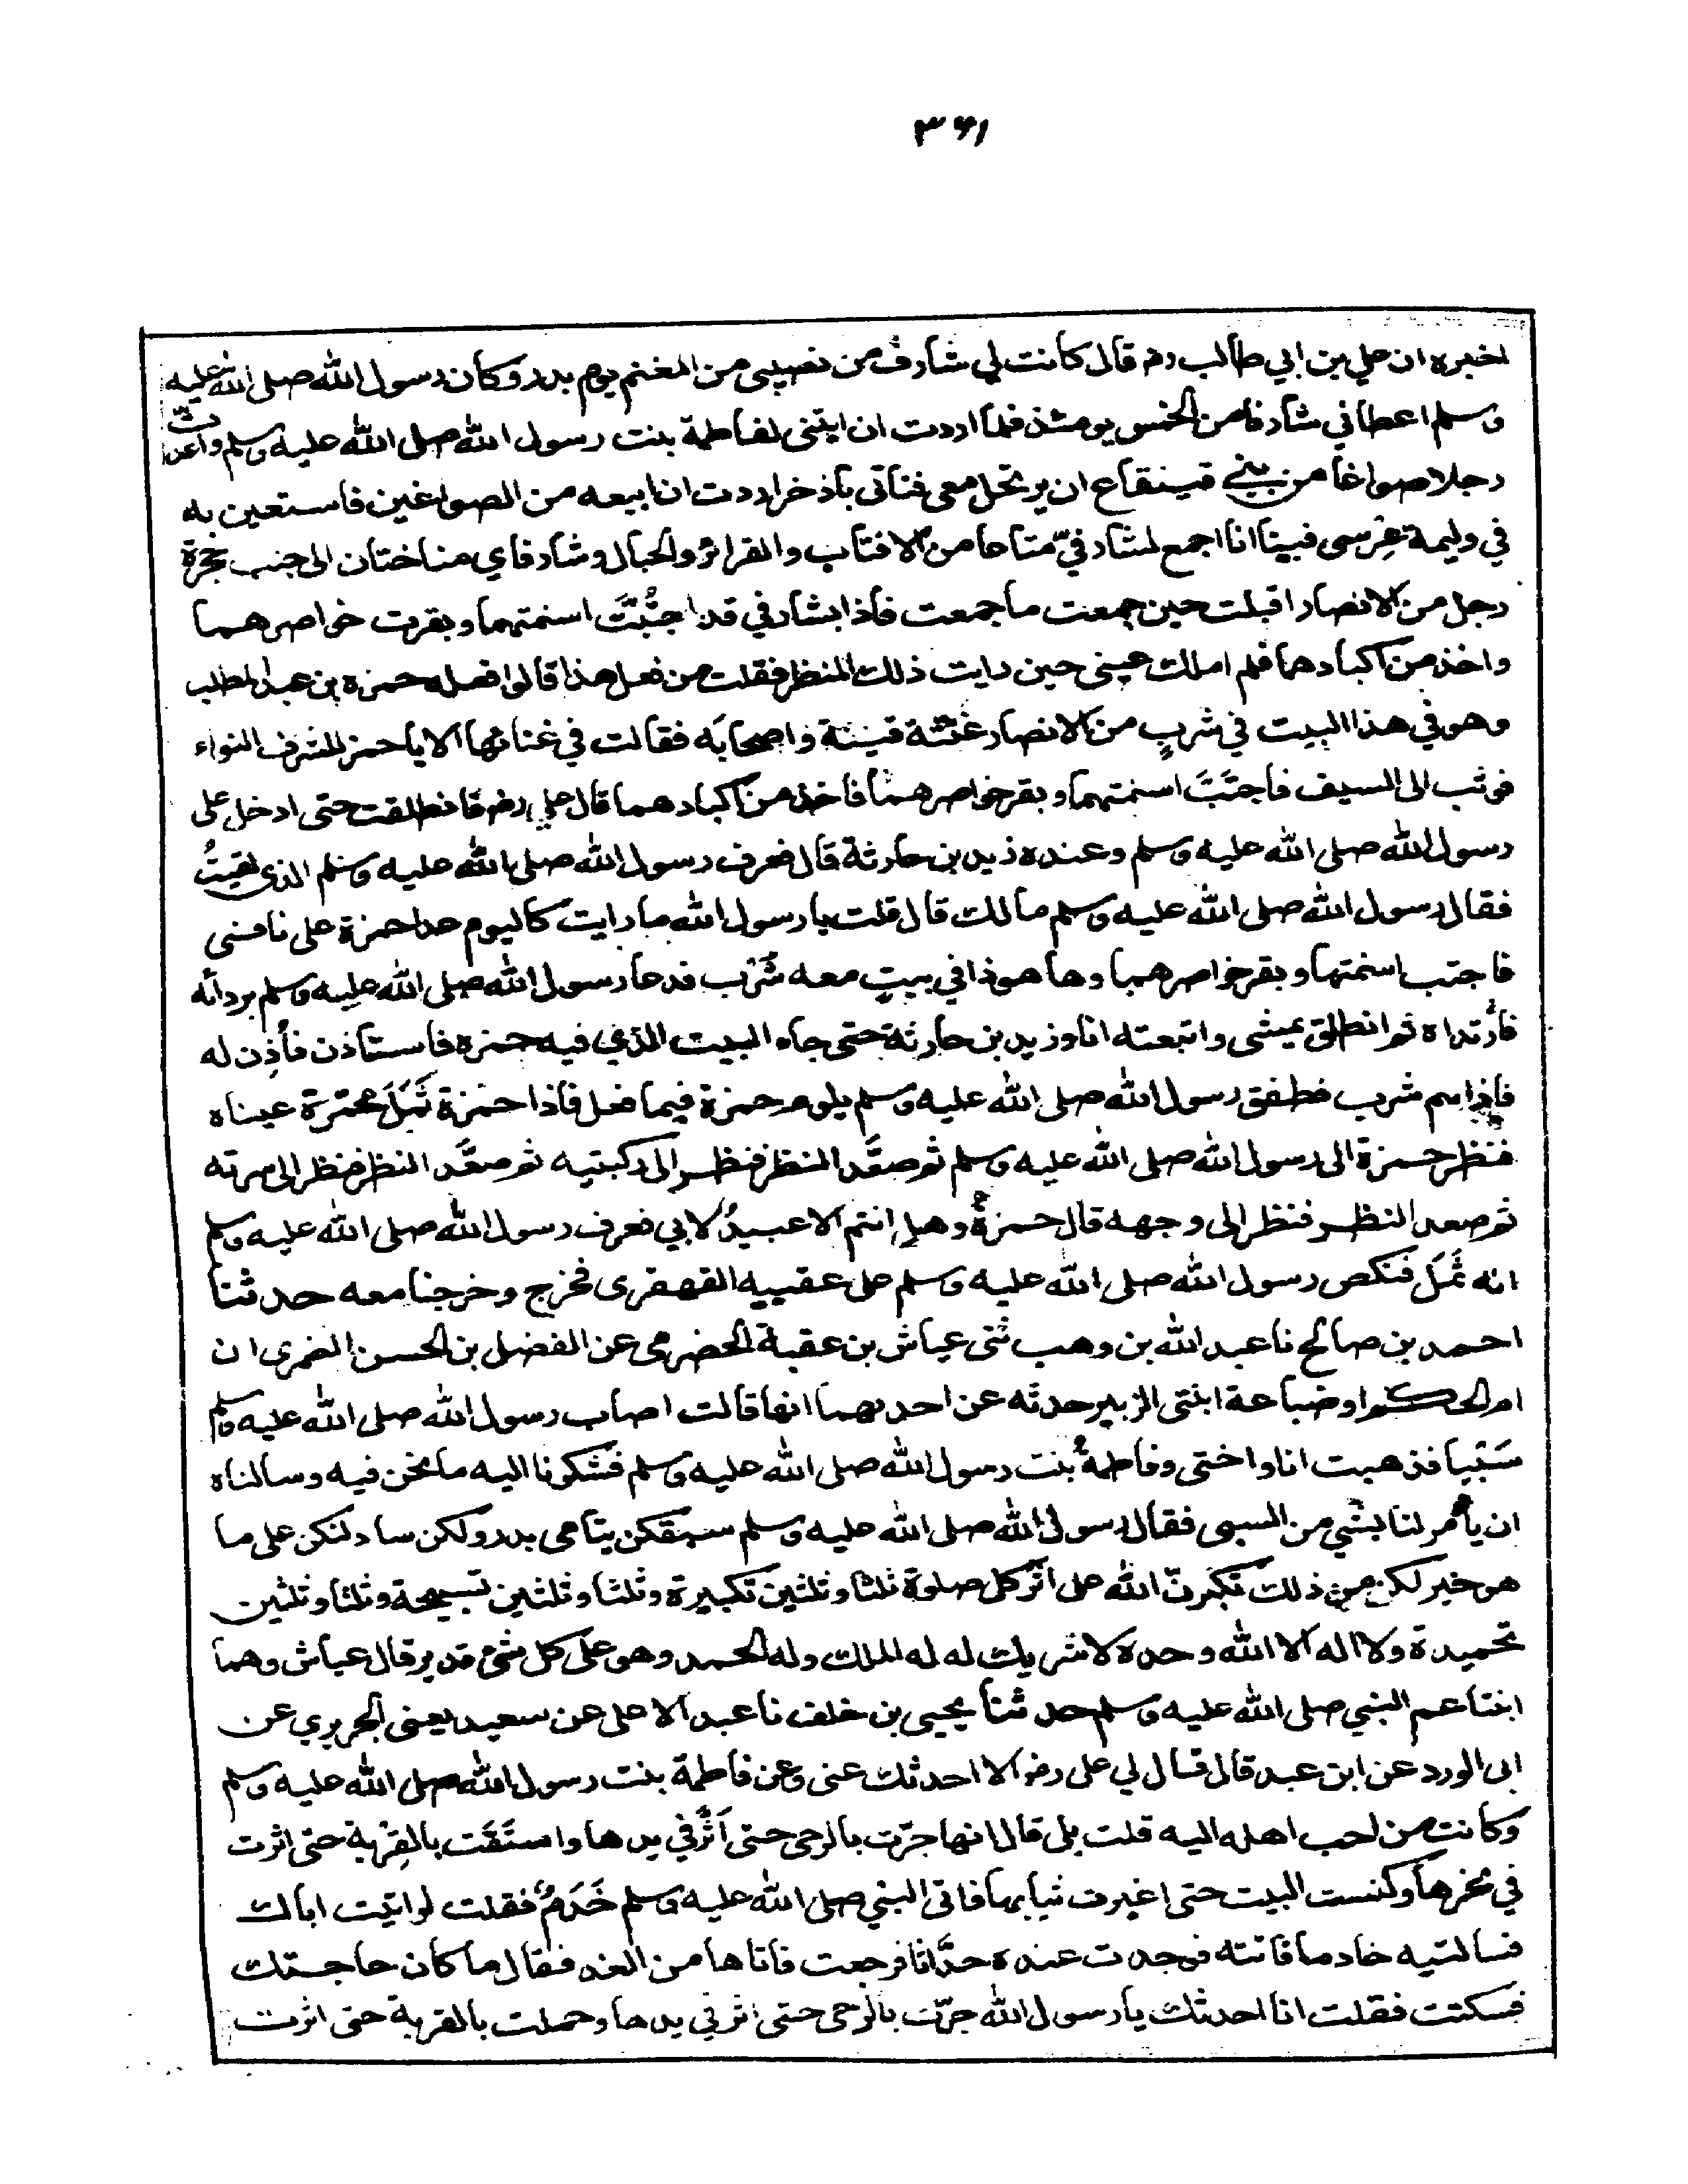 ٣٦١
اخبره ان علي بن ابي طالب رض قال كانت لي شارف من نصيبى من المغنم يوم بدر وكان رسول الله صلى الله عليه
وسلم اعطاني شارفا من الخمس يومئذ فلما اردت ان ابتنى لفاطمة بنت رسول الله صلى الله عليه وسلم واعدت
رجلا صواغا من بنى قينقاع ان يرتحل معى فنأتى باذخر اردت ان ابيعه من الصواغين فاستعين به
في وليمة عِرسى فبينا انا اجمع لشارفيّ متاعا من الاقتاب والغرائر والحبال وشارفاي مناختان الى جنب حجرة
رجل من الانصار اقبلت حين جمعت ما جمعت فاذا بشارفي قد اجتُبَّتْ اسنمتهما وبقرت خواصرهما
واخذ من اكبادهما فلم املك عينى حين رايت ذلك المنظر فقلت من فعل هذا قالوا فعله حمزه بن عبد المطلب
وهو في هذا البيت في شربٍ من الانصار غنته قينة واصحابَه فقالت في غنائها الا يا حمز للشرف النواء
فوثب الى السيف فاجتَبَّ اسنمتهما وبقر خواصرهما فاخذ من اكبادهما قال علي رض فانطلقت حتى ادخل على
رسول الله صلى الله عليه وسلم وعنده زيد بن حارثة قال فعرف رسول الله صلى الله عليه وسلم الذى لقيتُ
فقال رسول الله صلى الله عليه وسلم مالك قال قلت يا رسول الله ما رايت كاليوم عدا حمزة على ناقتى
فاجتب اسنمتها وبقر خواصرهما وها هو ذا في بيتٍ معه شَرْب فدعا رسول الله صلى الله عليه وسلم بردائه
فارْتداه ثم انطلق يمشى واتبعته انا وزيد بن حارثة حتى جاء البيت الذي فيه حمزه فاستاذن فأُذِن له
فاذا هم شرب فطفق رسول الله صلى الله عليه وسلم يلوم حمزة فيما فعل فاذا حمزة ثَمَلَ محمرة عيناه
فنظر حمزة الى رسول الله صلى الله عليه وسلم ثم صعَّد النظر فنظر الى ركبتيه ثم صعَّد النظر فنظر الى سرته
ثم صعد النظر فنظر الى وجهه قال حمزةُ وهل انتم الا عبيدٌ لابي فعرف رسول الله صلى الله عليه وسلم
انه ثَمَلَ فنكص رسول الله صلى الله عليه وسلم على عقبيه القهقرى فخرج وخرجنا معه حدثنا
احمد بن صالح نا عبد الله بن وهب ثنى عياش بن عقبة الحضرمى عن الفضل بن الحسن الضمرى ان
ام الحكم او ضباعة ابنتى الزبير حدثه عن احدىهما انها قالت اصاب رسول الله صلى الله عليه وسلم
سَبْيا فذهبت انا واختى وفاطمةُ بنت رسول الله صلى الله عليه وسلم فشكونا اليه ما نحن فيه وسالناه
ان يأمر لنا بشي من السبى فقال رسول الله صلى الله عليه وسلم سبقكن يتامى بدر ولكن سادلكن على ما
هو خير لكن من ذلك تكبرنّ الله على اثر كل صلوة ثلثا وثلثين تكبيرة وثلثا وثلثين تسبيحة وثلثا وثلثين
تحميدة ولا اله الا الله وحده لا شريك له له الملك وله الحمد وهو على كل شئ قدير قال عياش وهما
ابنتا عم النبي صلى الله عليه وسلم حدثنا يحيى بن خلف نا عبد الاعلى عن سعيد يعنى الجريري عن
ابى الورد عن ابن عبد قال قال لي على رض الا احدثك عنى وعن فاطمة بنت رسول الله صلى الله عليه وسلم
وكانت من احب اهله اليه قلت بلى قال انها جرّت بالرحى حتى اَثَّر في يدها واستَقَت بالقِرْبة حتى اثرت
في نحرها وكنست البيت حتى اغبرت ثيابها فاتى النبي صلى الله عليه وسلم خَدَمٌ فقلت لو اتيت اباك
فسالتيه خادما فاتته فوجدت عنده حدَّاثا فرجعت فاتاها من الغد فقال ما كان حاجتك
فسكتت فقلت انا احدثك يا رسول الله جرّت بالرحى حتى اثر في يدها وحملت بالقربة حتى اثرت